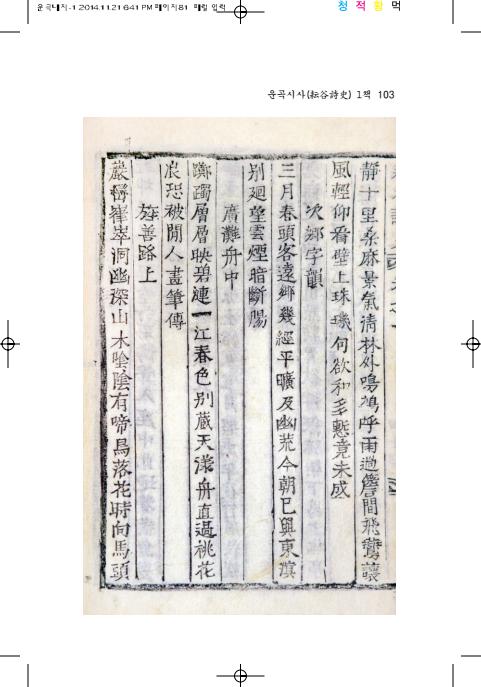 운곡내지-1 2014.11.21 6:41 PM 페이지81 매월 입력
청 적 황 먹
운곡시사(耘谷詩史) 1책 103
靜十里桑麻景氣清林外鳴鳩呼雨過簷間飛鷰讓
風輕仰看壁上珠璣句欲和多慙竟未成
次鄉字韻
三月春頭客遠鄉幾經平曠及幽荒今朝已與東溟
別廻望雲煙暗斷膓
廣灘舟中
躑躅層層映碧漣一江春色別藏天漾舟直過桃花
浪恐被閒人畫筆傳
旌善路上
巖巒崒崒洞幽深山木陰陰有啼鳥落花時向馬頭